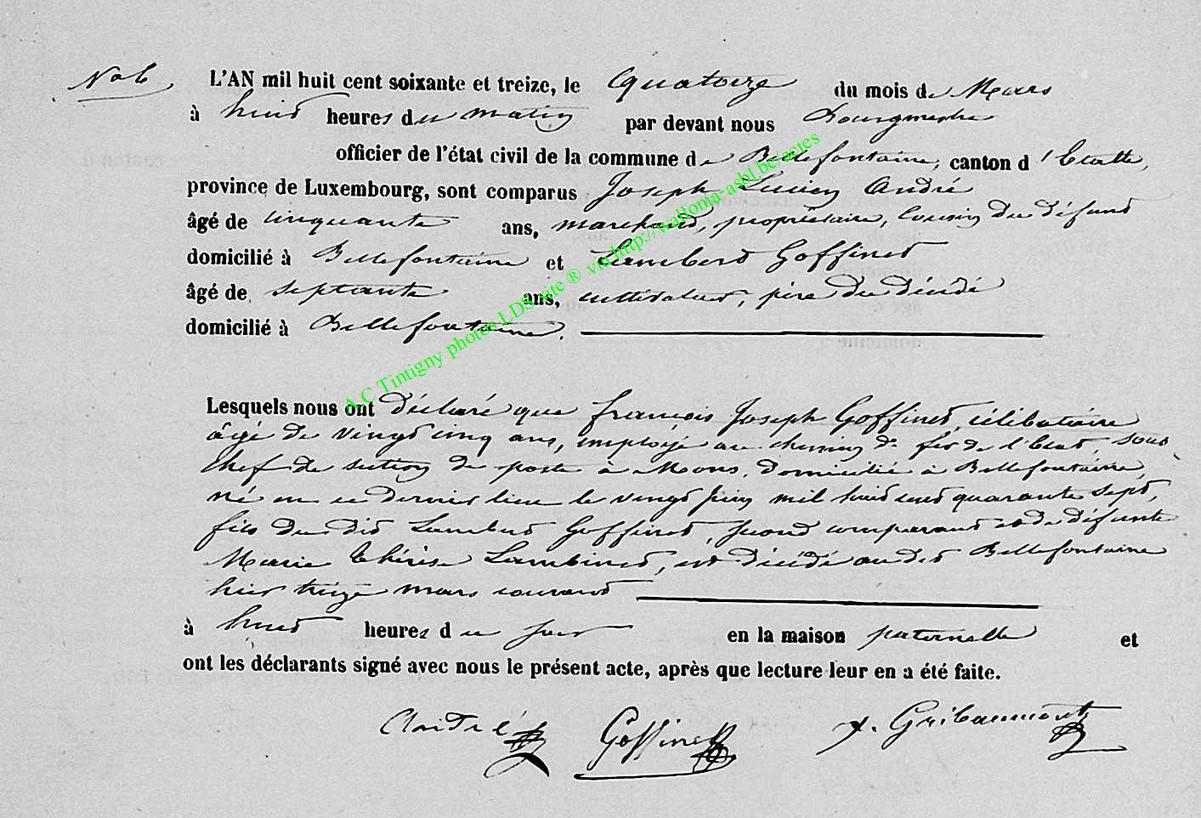 No 6
L'AN mil huit cent soixante et treize, le Quatorze du mois de Mars
à huit heures du matin par devant nous Bourgmestre
officier de l'état civil de la commune de Bellefontaine, canton d'Etalle,
province de Luxembourg, sont comparus Joseph Lucien André
âgé de cinquante ans, marchand, propriétaire, cousin du défunt
domicilié à Bellefontaine et Lambert Goffinet
âgé de septante ans, cultivateur, père du décédé
domicilié à Bellefontaine.
Lesquels nous ont déclaré que françois Joseph Goffinet, célibataire
âgé de vingt cinq ans, employé au chemin de fer de l'Etat, sous
chef de section de poste à Mons, domicilié à Bellefontaine,
né en ce dernier lieu le vingt juin mil huit cent quarante sept,
fils du dit Lambert Goffinet, second comparant et de défunte
Marie Thérèse Lambinet, est décédé au dit Bellefontaine
hier treize mars courant
à huit heures du soir en la maison paternelle et
ont les déclarants signé avec nous le présent acte, après que lecture leur en a été faite.
André Goffinet Gribaumont
A.C Tintigny photos LDS site ® via http://wallonia-asbl.be/actes